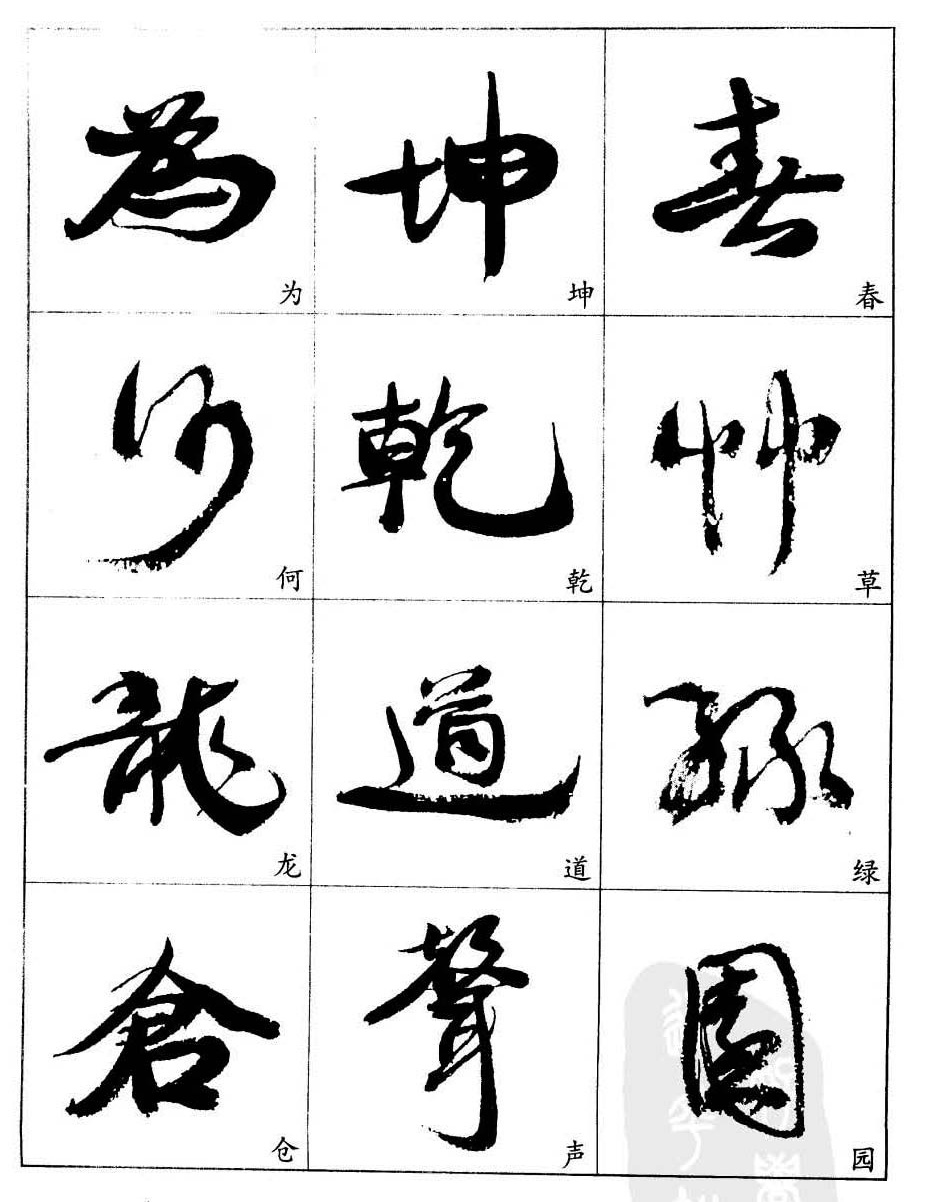 春 坤 為
春 坤 为
艸 乾 何
草 乾 何
綠 道 龍
绿 道 龙
園 聲 倉
园 声 仓